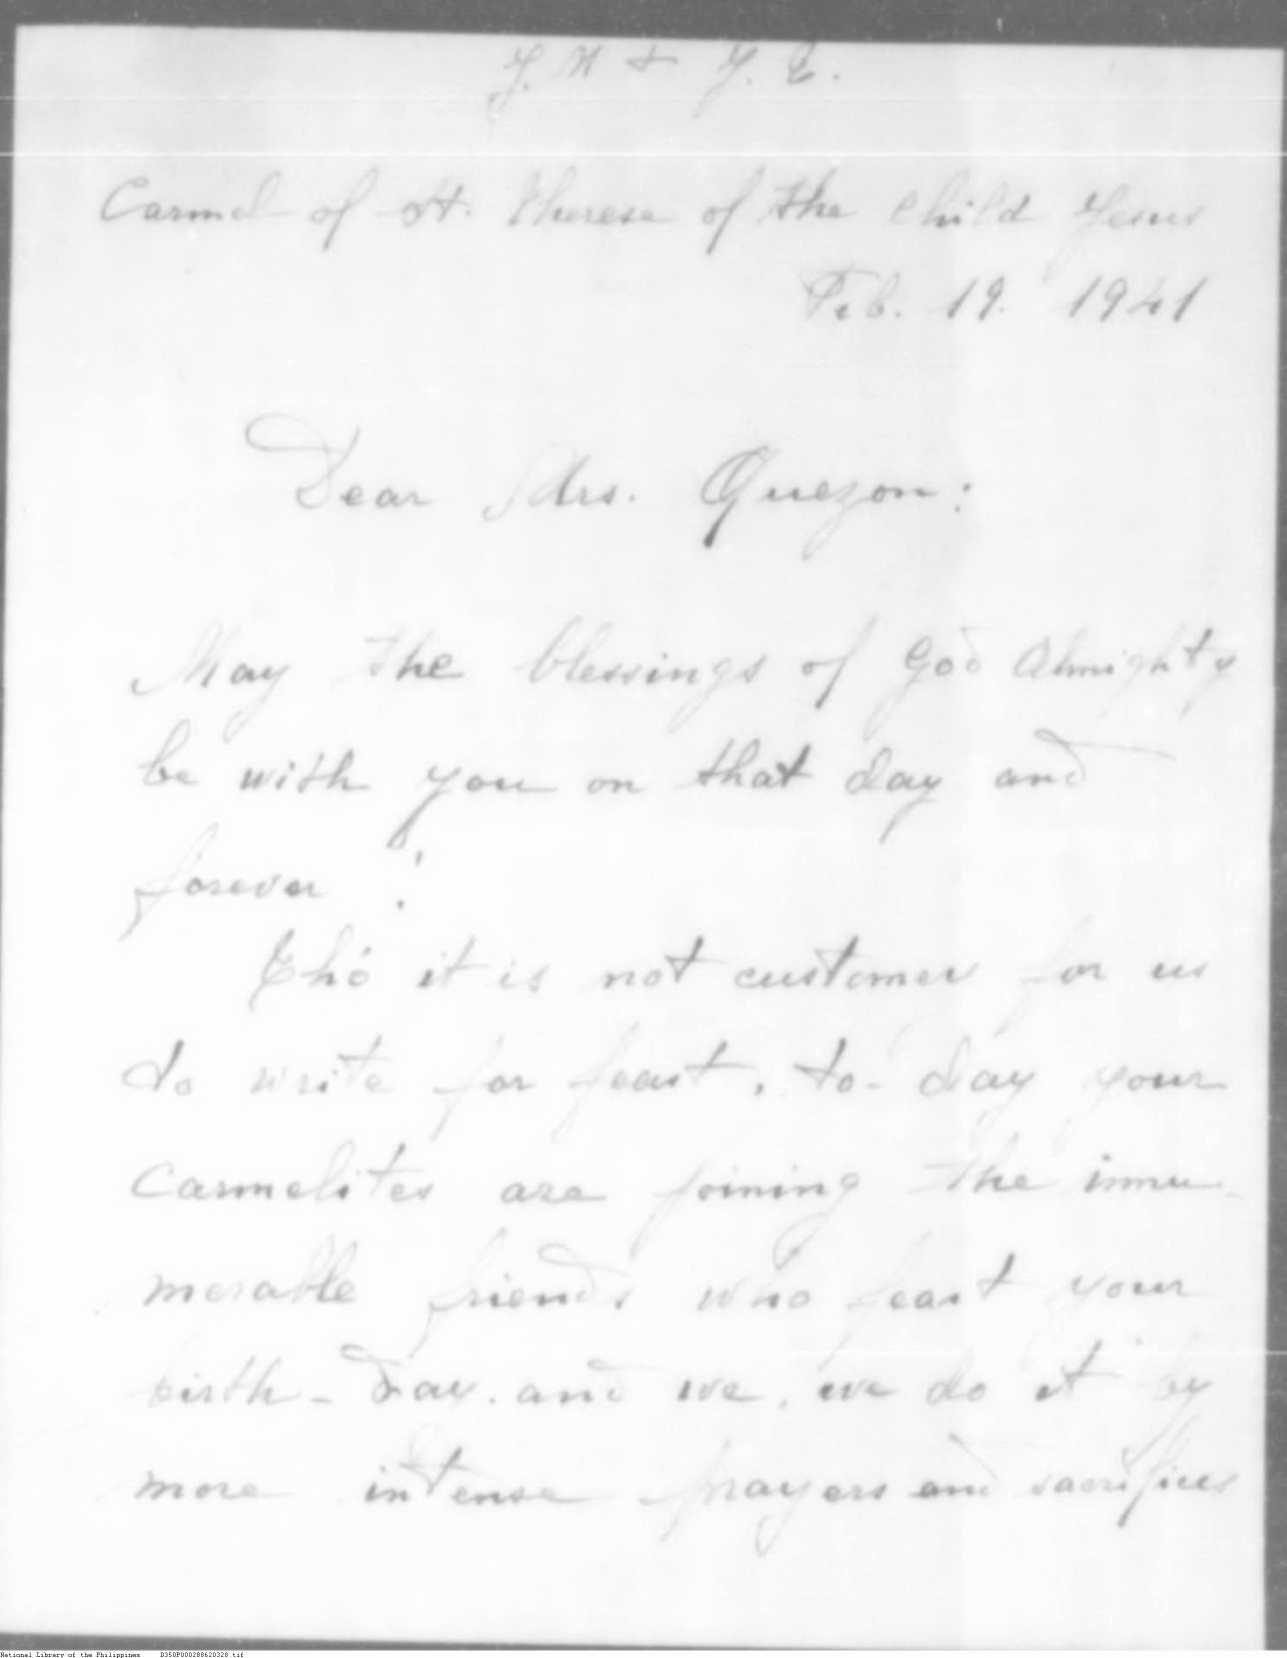 J. M + J. T.
Carmel of St. Therese of the Child Jesus
Feb. 19. 1941
Dear Mrs. Quezon:
May the blessings of God Almighty
be with you on that day and
forever!
Thó it is not customer for us
to write for feast, to-day your
Carmelites are joining the innu-
merable friends who feast your
birth-day. and we, we do it by
more intense prayers and sacrifices
National Library of the Philippines D350P000288620328.tif